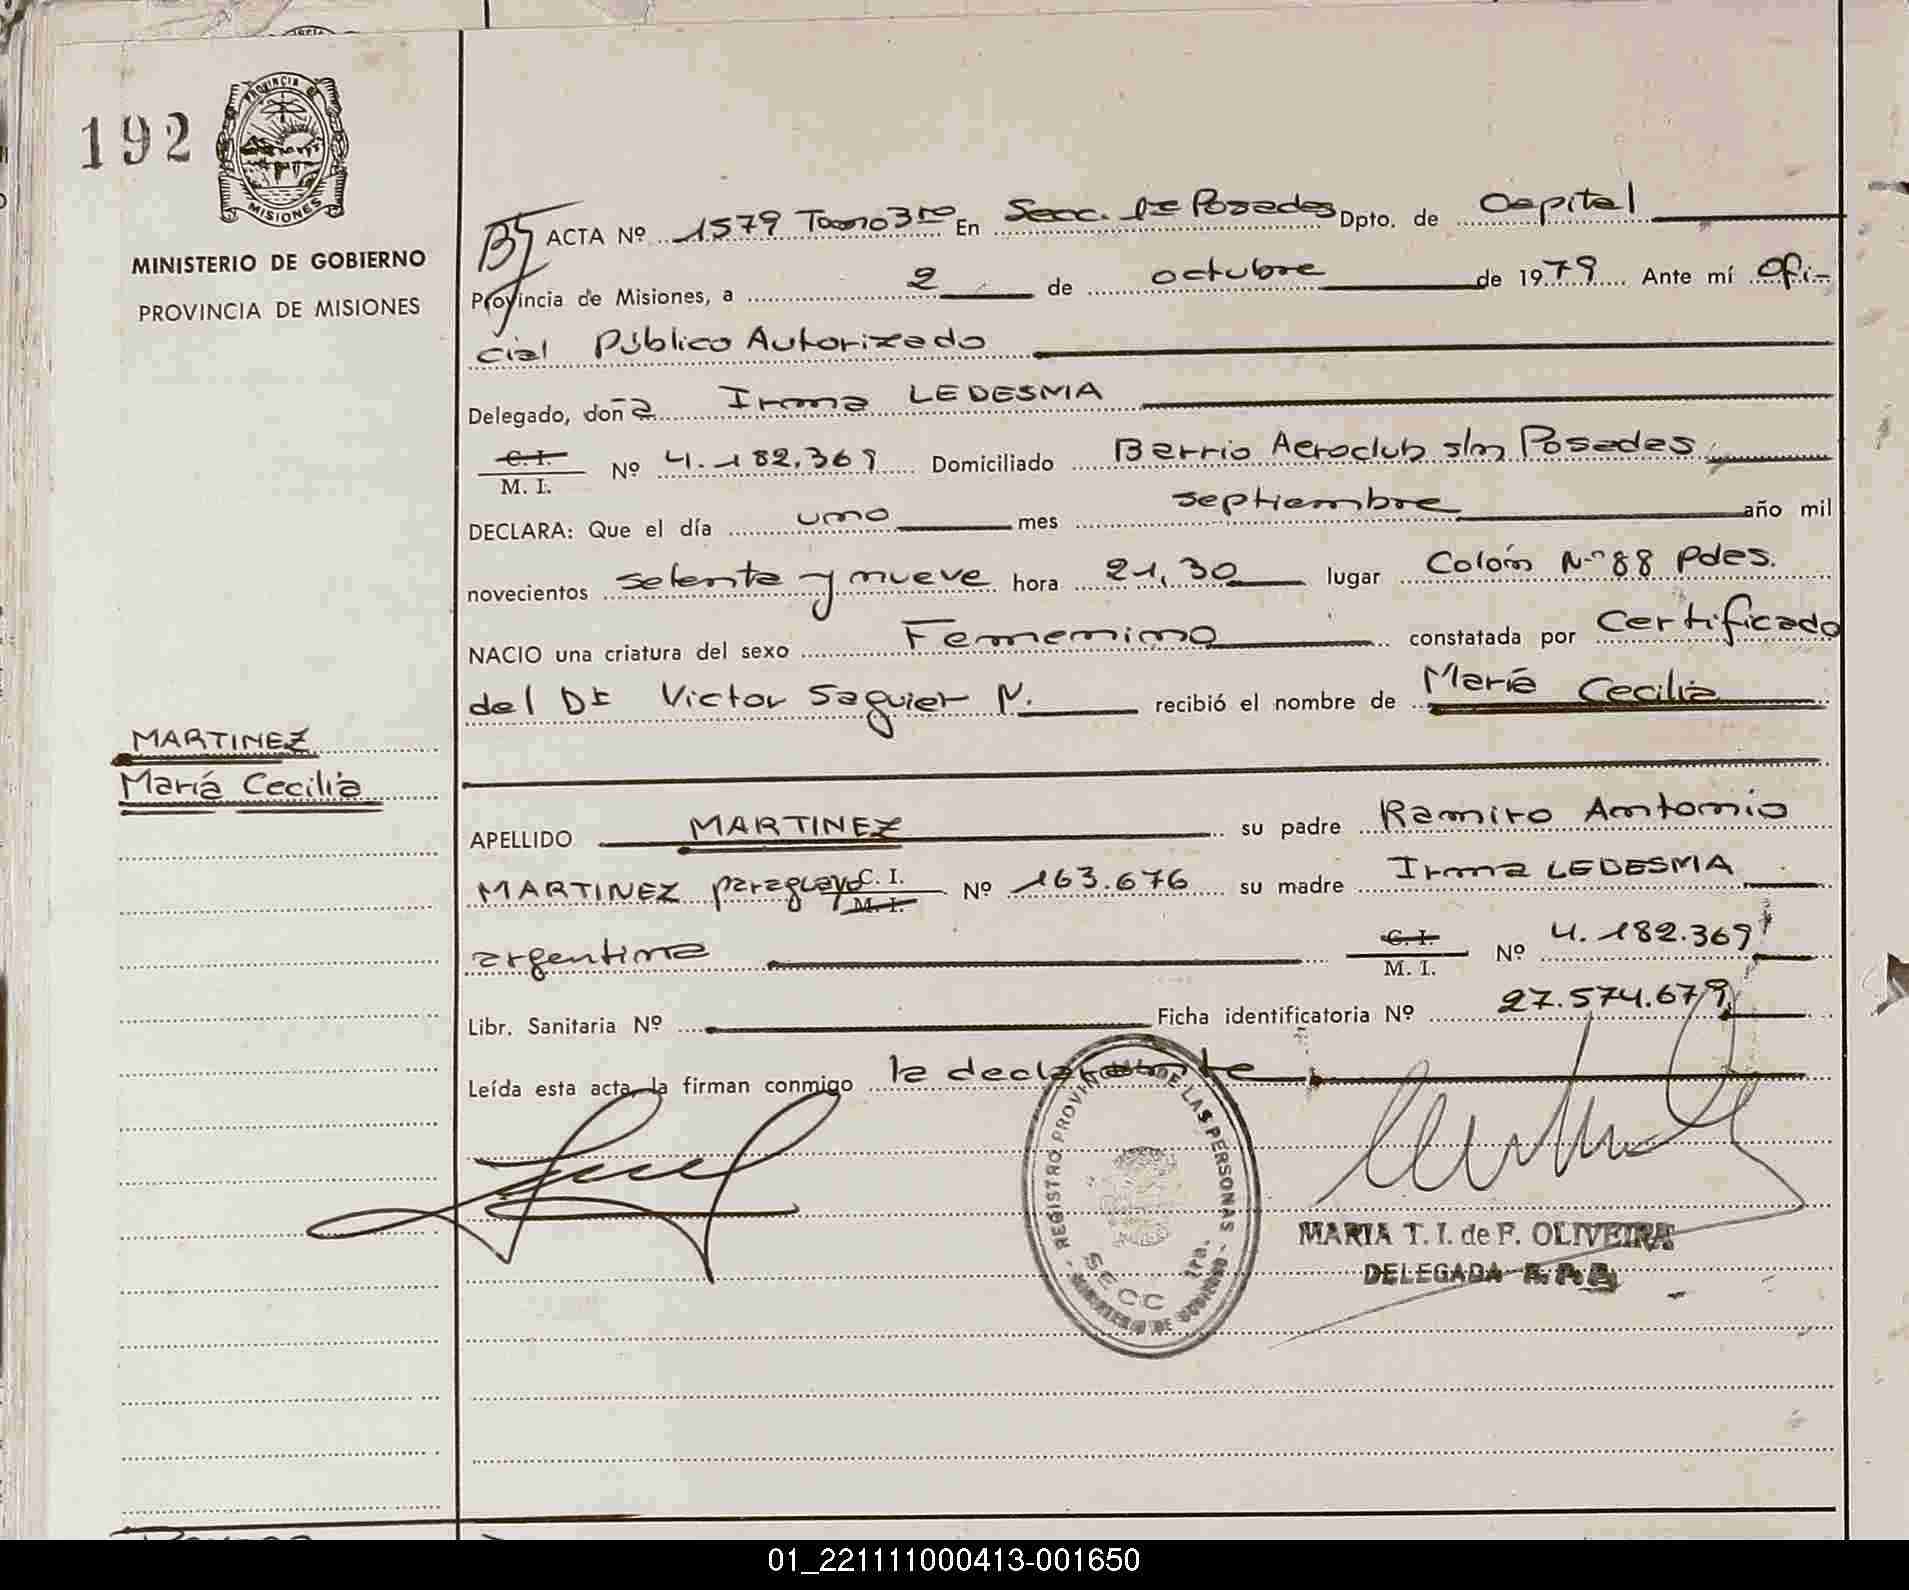 192
PROVINCIA DE
MISIONES
MINISTERIO DE GOBIERNO
PROVINCIA DE MISIONES
ACTA Nº 1579 Tomo 3ro En Secc. 1ra Posadas Dpto. de Capital
Provincia de Misiones, a 2 de octubre de 1979 Ante mí Ofi-
cial Público Autorizado
Delegado, doña Irma LEDESMA
C. I.
M. I. Nº 4.182.369 Domiciliado Barrio Aeroclub s/n Posadas
DECLARA: Que el día uno mes septiembre año mil
novecientos setenta y nueve hora 21,30 lugar Colón Nº 88 Pdas.
NACIO una criatura del sexo Femenino constatada por Certificado
del Dr Victor Saguier N. recibió el nombre de María Cecilia
MARTINEZ
María Cecilia
APELLIDO MARTINEZ su padre Ramiro Antonio
MARTINEZ paraguayo C. I. M. I. Nº 163.676 su madre Irma LEDESMA
argentina C. I. M. I. Nº 4.182.369
Libr. Sanitaria Nº Ficha identificatoria Nº 27.574.679
Leída esta acta, la firman conmigo la declarante
REGISTRO PROVIN DE LAS PERSONAS
SECC 1ra.
MINISTERIO DE GOBIERNO
MARIA T. I. de F. OLIVEIRA
DELEGADA R. P. P.
01_221111000413-001650